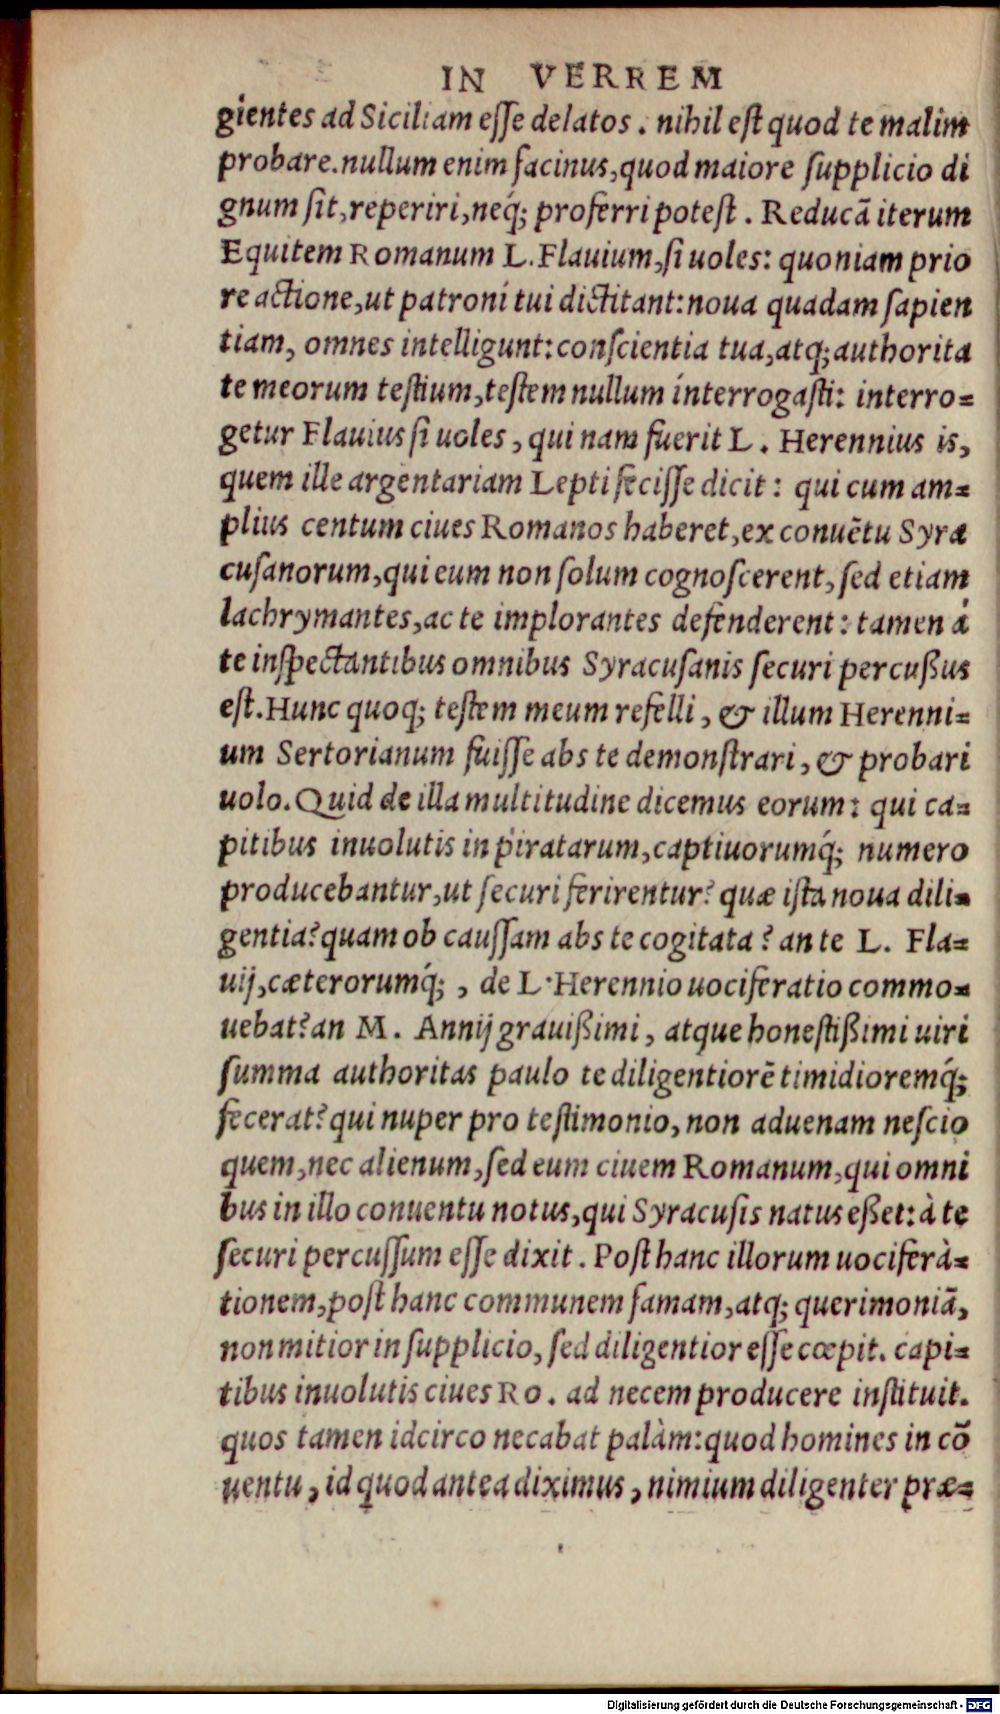 IN VERREM
gientes ad Siciliam esse delatos. nihil est quod te malim
probare. nullum enim facinus, quod maiore supplicio di
gnum sit, reperiri, neq́; proferri potest. Reducā iterum
Equitem Romanum L. Flauium, si uoles: quoniam prio
re actione, ut patroni tui dictitant: noua quadam sapien
tiam, omnes intelligunt: conscientia tua, atq; authorita
te meorum testium, testem nullum interrogasti: interro=
getur Flauius si uoles, qui nam fuerit L. Herennius is,
quem ille argentariam Lepti fecisse dicit: qui cum am=
plius centum ciues Romanos haberet, ex conuētu Syra
cusanorum, qui eum non solum cognoscerent, sed etiam
lachrymantes, ac te implorantes defenderent: tamen á
te inspectantibus omnibus Syracusanis securi percußus
est. Hunc quoq; testem meum refelli, & illum Herenni=
um Sertorianum fuisse abs te demonstrari, & probari
uolo. Quid de illa multitudine dicemus eorum: qui ca=
pitibus inuolutis in piratarum, captiuorumq́; numero
producebantur, ut securi ferirentur? quæ ista noua dili=
gentia? quam ob caussam abs te cogitata? an te L. Fla=
uij, cæterorumq́;, de L. Herennio uociferatio commo=
uebat? an M. Annij grauißimi, atque honestißimi uiri
summa authoritas paulo te diligentiorē timidioremq́;
fecerat? qui nuper pro testimonio, non aduenam nescio
quem, nec alienum, sed eum ciuem Romanum, qui omni
bus in illo conuentu notus, qui Syracusis natus eßet: à te
securi percussum esse dixit. Post hanc illorum uociferà=
tionem, post hanc communem famam, atq; querimoniā,
non mitior in supplicio, sed diligentior esse cœpit. capi=
tibus inuolutis ciues Ro. ad necem producere instituit.
quos tamen idcirco necabat palàm: quod homines in cō
uentu, id quod antea diximus, nimium diligenter præ=
Digitalisierung gefördert durch die Deutsche Forschungsgemeinschaft - DFG